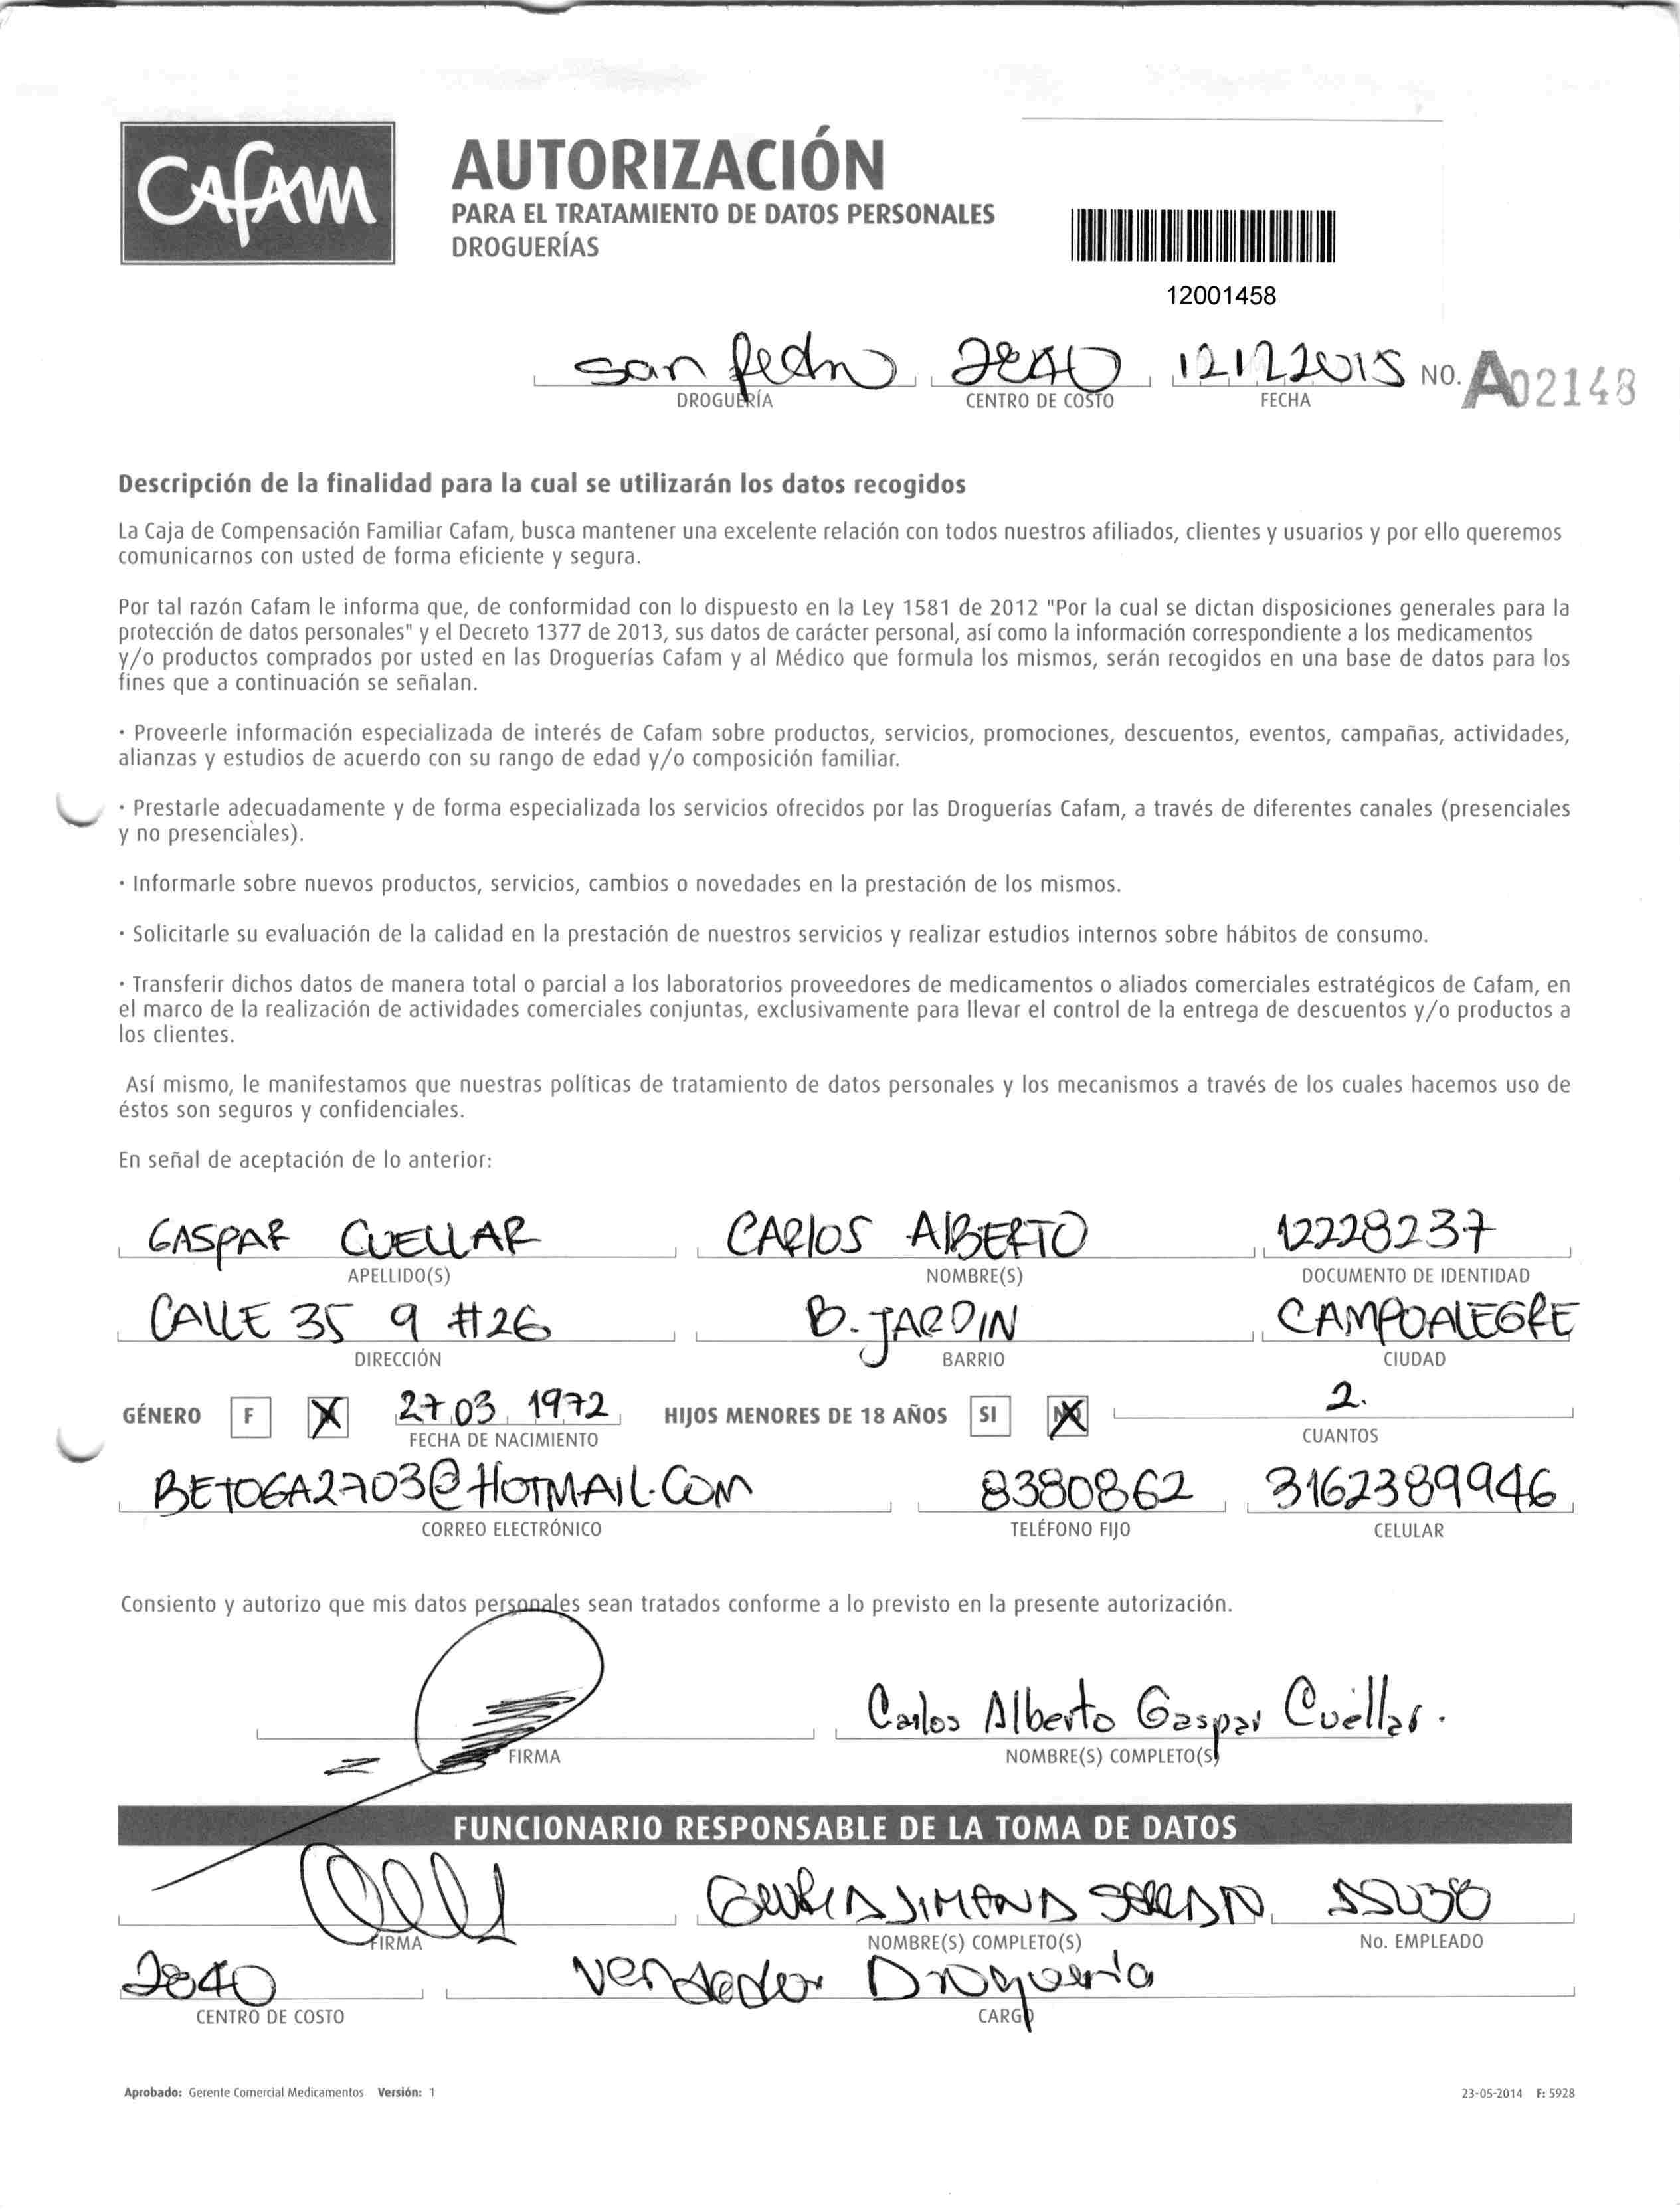 CAFAM
AUTORIZACIÓN
PARA EL TRATAMIENTO DE DATOS PERSONALES
DROGUERÍAS
12001458
san Pedro 2840 12122015 NO. A02148
DROGUERÍA CENTRO DE COSTO FECHA
Descripción de la finalidad para la cual se utilizarán los datos recogidos
La Caja de Compensación Familiar Cafam, busca mantener una excelente relación con todos nuestros afiliados, clientes y usuarios y por ello queremos
comunicarnos con usted de forma eficiente y segura.
Por tal razón Cafam le informa que, de conformidad con lo dispuesto en la Ley 1581 de 2012 "Por la cual se dictan disposiciones generales para la
protección de datos personales" y el Decreto 1377 de 2013, sus datos de carácter personal, así como la información correspondiente a los medicamentos
y/o productos comprados por usted en las Droguerías Cafam y al Médico que formula los mismos, serán recogidos en una base de datos para los
fines que a continuación se señalan.
· Proveerle información especializada de interés de Cafam sobre productos, servicios, promociones, descuentos, eventos, campañas, actividades,
alianzas y estudios de acuerdo con su rango de edad y/o composición familiar.
· Prestarle adecuadamente y de forma especializada los servicios ofrecidos por las Droguerías Cafam, a través de diferentes canales (presenciales
y no presenciales).
· Informarle sobre nuevos productos, servicios, cambios o novedades en la prestación de los mismos.
· Solicitarle su evaluación de la calidad en la prestación de nuestros servicios y realizar estudios internos sobre hábitos de consumo.
· Transferir dichos datos de manera total o parcial a los laboratorios proveedores de medicamentos o aliados comerciales estratégicos de Cafam, en
el marco de la realización de actividades comerciales conjuntas, exclusivamente para llevar el control de la entrega de descuentos y/o productos a
los clientes.
Así mismo, le manifestamos que nuestras políticas de tratamiento de datos personales y los mecanismos a través de los cuales hacemos uso de
éstos son seguros y confidenciales.
En señal de aceptación de lo anterior:
GASPAR CUELLAR CARlOS AlBERTO 12228237
APELLIDO(S) NOMBRE(S) DOCUMENTO DE IDENTIDAD
CALLE 35 9 #26 B. JARDIN CAMPOALEGRE
DIRECCIÓN BARRIO CIUDAD
GÉNERO F X 27 03 1972 HIJOS MENORES DE 18 AÑOS SI NO 2.
FECHA DE NACIMIENTO CUANTOS
BETOGA2703@HOTMAIL.COM 8380862 3162389946
CORREO ELECTRÓNICO TELÉFONO FIJO CELULAR
Consiento y autorizo que mis datos personales sean tratados conforme a lo previsto en la presente autorización.
Carlos Alberto Gaspar Cuellar.
FIRMA NOMBRE(S) COMPLETO(S)
FUNCIONARIO RESPONSABLE DE LA TOMA DE DATOS
FIRMA NOMBRE(S) COMPLETO(S) No. EMPLEADO
2840 Vendedor Drogueria
CENTRO DE COSTO CARGO
Aprobado: Gerente Comercial Medicamentos Versión: 1 23-05-2014 F: 5928